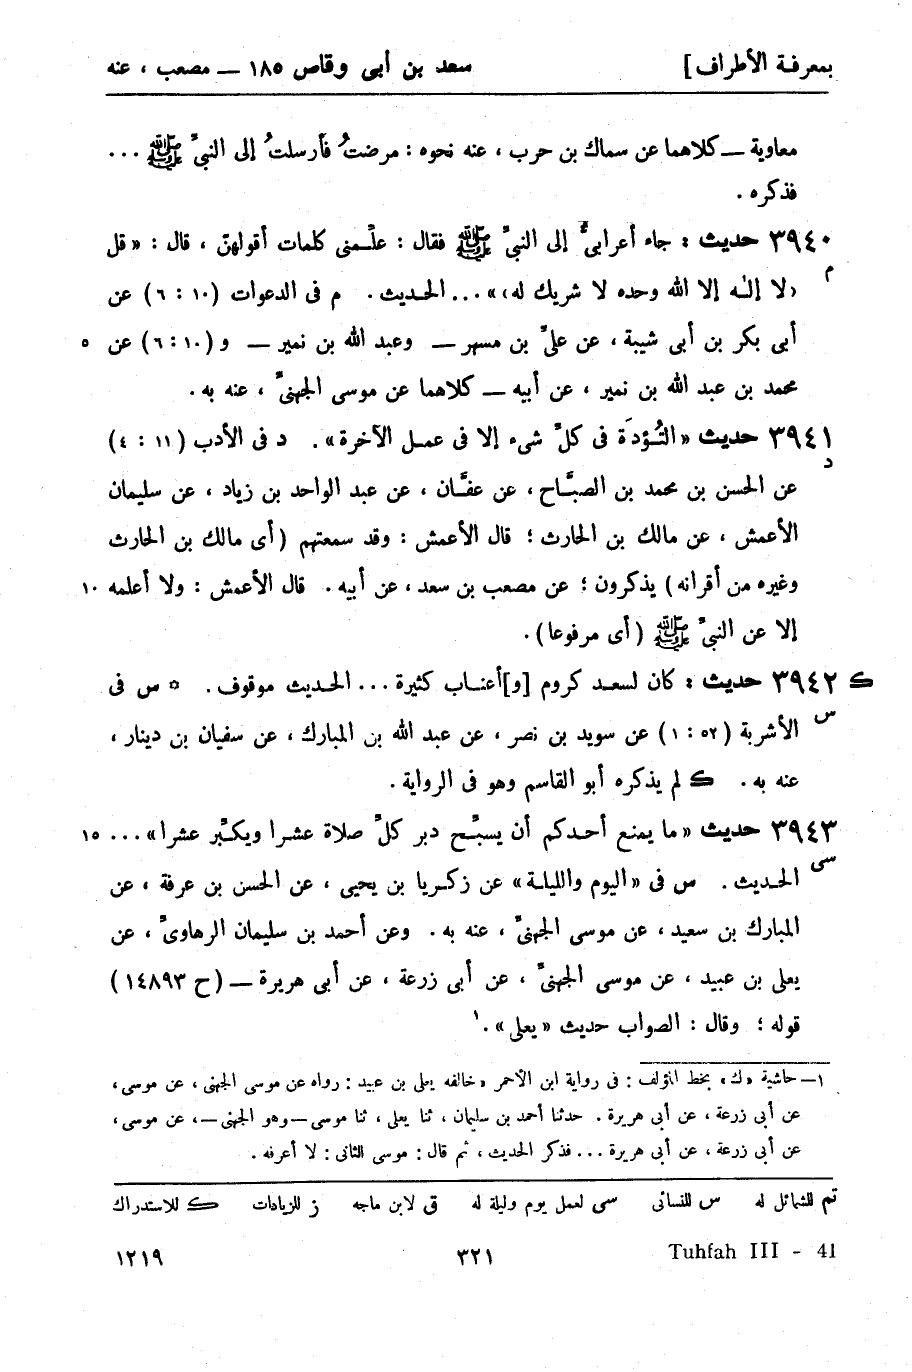 بمعرفة الأطراف] سعد بن أبى وقاص ١٨٥ — مصعب ، عنه
معاوية — كلاهما عن سماك بن حرب ، عنه نحوه : مرضتُ فأرسلتُ إلى النبيّ ﷺ ...
فذكره .
٣٩٤٠ حديث : جاء أعرابىٌّ إلى النبىّ ﷺ فقال : علّمنى كلمات أقولهنّ ، قال : « قل
م
‹لا إلٰه إلا الله وحده لا شريك له›» ... الحديث . م فى الدعوات (١٠ : ٦) عن
أبى بكر بن أبى شيبة ، عن علىّ بن مسهر — وعبد الله بن نمير — و (١٠ : ٦) عن ٥
محمد بن عبد الله بن نمير ، عن أبيه — كلاهما عن موسى الجهنىّ ، عنه به .
٣٩٤١ حديث « التُؤدَة فى كلّ شىء إلا فى عمل الآخرة » . د فى الأدب (١١ : ٤)
د
عن الحسن بن محمد بن الصبّاح ، عن عفّان ، عن عبد الواحد بن زياد ، عن سليمان
الأعمش ، عن مالك بن الحارث ؛ قال الأعمش : وقد سمعتهم (أى مالك بن الحارث
وغيره من أقرانه) يذكرون ؛ عن مصعب بن سعد ، عن أبيه . قال الأعمش : ولا أعلمه ١٠
إلا عن النبىّ ﷺ (أى مرفوعا) .
ك ٣٩٤٢ حديث : كان لسعد كروم [و]أعناب كثيرة ... الحديث موقوف . * س فى
س
الأشربة (٥٢ : ١) عن سويد بن نصر ، عن عبد الله بن المبارك ، عن سفيان بن دينار ،
عنه به . ك لم يذكره أبو القاسم وهو فى الرواية .
٣٩٤٣ حديث « ما يمنع أحدكم أن يسبّح دبر كلّ صلاة عشرا ويكبّر عشرا » ... ١٥
سى
الحديث . س فى « اليوم والليلة » عن زكريا بن يحيى ، عن الحسن بن عرفة ، عن
المبارك بن سعيد ، عن موسى الجهنىّ ، عنه به . وعن أحمد بن سليمان الرهاوىّ ، عن
يعلى بن عبيد ، عن موسى الجهنىّ ، عن أبى زرعة ، عن أبى هريرة — (ح ١٤٨٩٣)
قوله ؛ وقال : الصواب حديث « يعلى » .١
١ — حاشية «ك» بخط المؤلف : فى رواية ابن الأحمر «خالفه يعلى بن عبيد : رواه عن موسى الجهنى ، عن موسى ،
عن أبى زرعة ، عن أبى هريرة . حدثنا أحمد بن سليمان ، ثنا يعلى ، ثنا موسى — وهو الجهنى — ، عن موسى ،
عن أبى زرعة ، عن أبى هريرة ... فذكر الحديث ، ثم قال : موسى الثانى : لا أعرفه .
تم للشمائل له س للنسائى سى لعمل يوم وليلة له ق لابن ماجه ز للزيادات ك للاستدراك
Tuhfah III - 41 ٣٢١ ١٢١٩